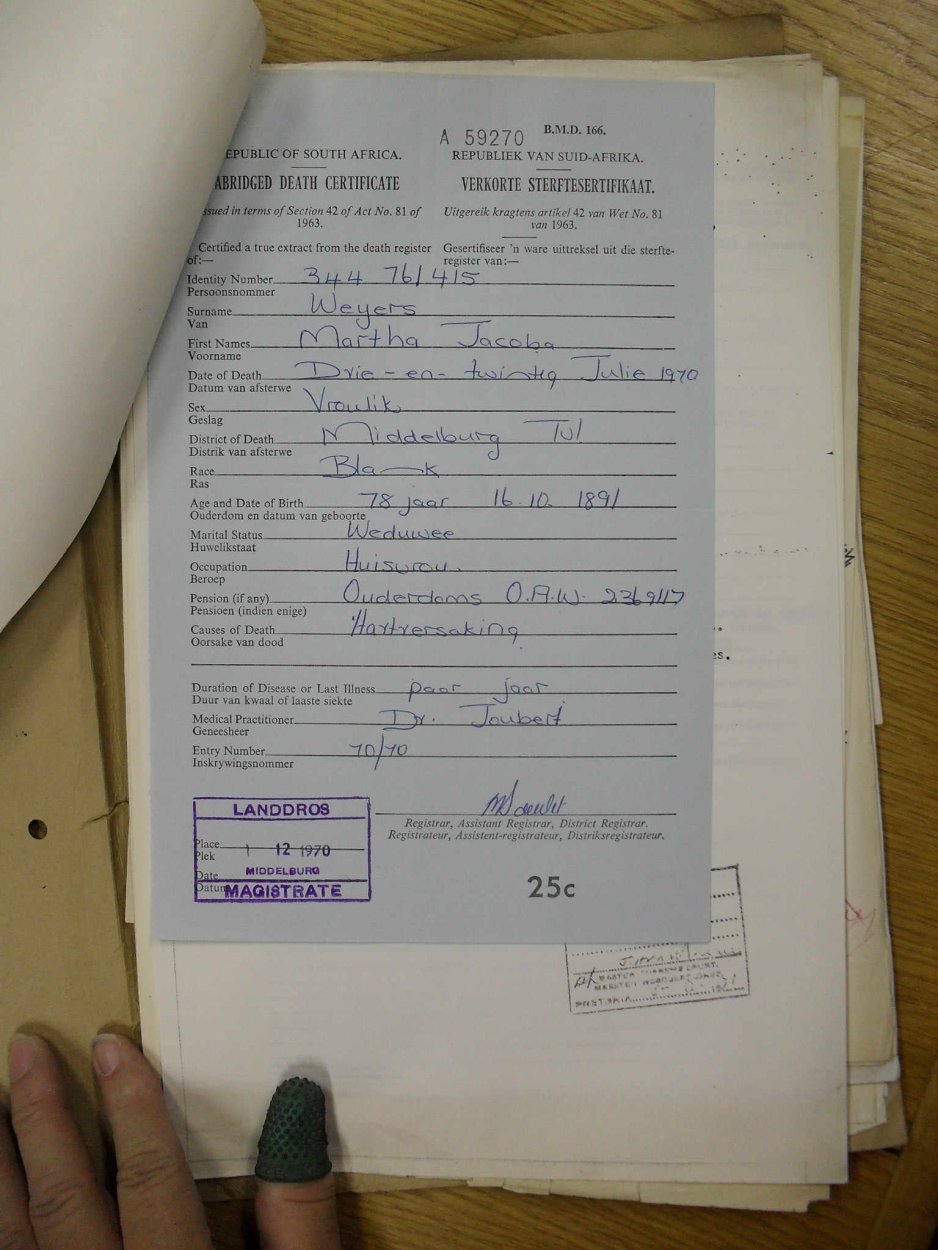 A 59270 B.M.D. 166.
EPUBLIC OF SOUTH AFRICA. REPUBLIEK VAN SUID-AFRIKA.
ABRIDGED DEATH CERTIFICATE VERKORTE STERFTESERTIFIKAAT.
ssued in terms of Section 42 of Act No. 81 of 1963. Uitgereik kragtens artikel 42 van Wet No. 81 van 1963.
Certified a true extract from the death register of:— Gesertifiseer 'n ware uittreksel uit die sterfte-register van:—
Identity Number 344 761415
Persoonsnommer
Surname Weyers
Van
First Names Martha Jacoba
Voorname
Date of Death Drie-en-twintig Julie 1970
Datum van afsterwe
Sex Vroulik
Geslag
District of Death Middelburg Tvl
Distrik van afsterwe
Race Blank
Ras
Age and Date of Birth 78 jaar 16.10.1891
Ouderdom en datum van geboorte
Marital Status Weduwee
Huwelikstaat
Occupation Huisvrou.
Beroep
Pension (if any) Ouderdoms O.A.W. 2369117
Pensioen (indien enige)
Causes of Death Hartversaking
Oorsake van dood
Duration of Disease or Last Illness paar jaar
Duur van kwaal of laaste siekte
Medical Practitioner Dr. Joubert
Geneesheer
Entry Number 70/70
Inskrywingsnommer
Registrar, Assistant Registrar, District Registrar.
Registrateur, Assistent-registrateur, Distriksregistrateur.
LANDDROS
Place
Plek 1 12 1970
Date MIDDELBURG
Datum MAGISTRATE
25c
es.